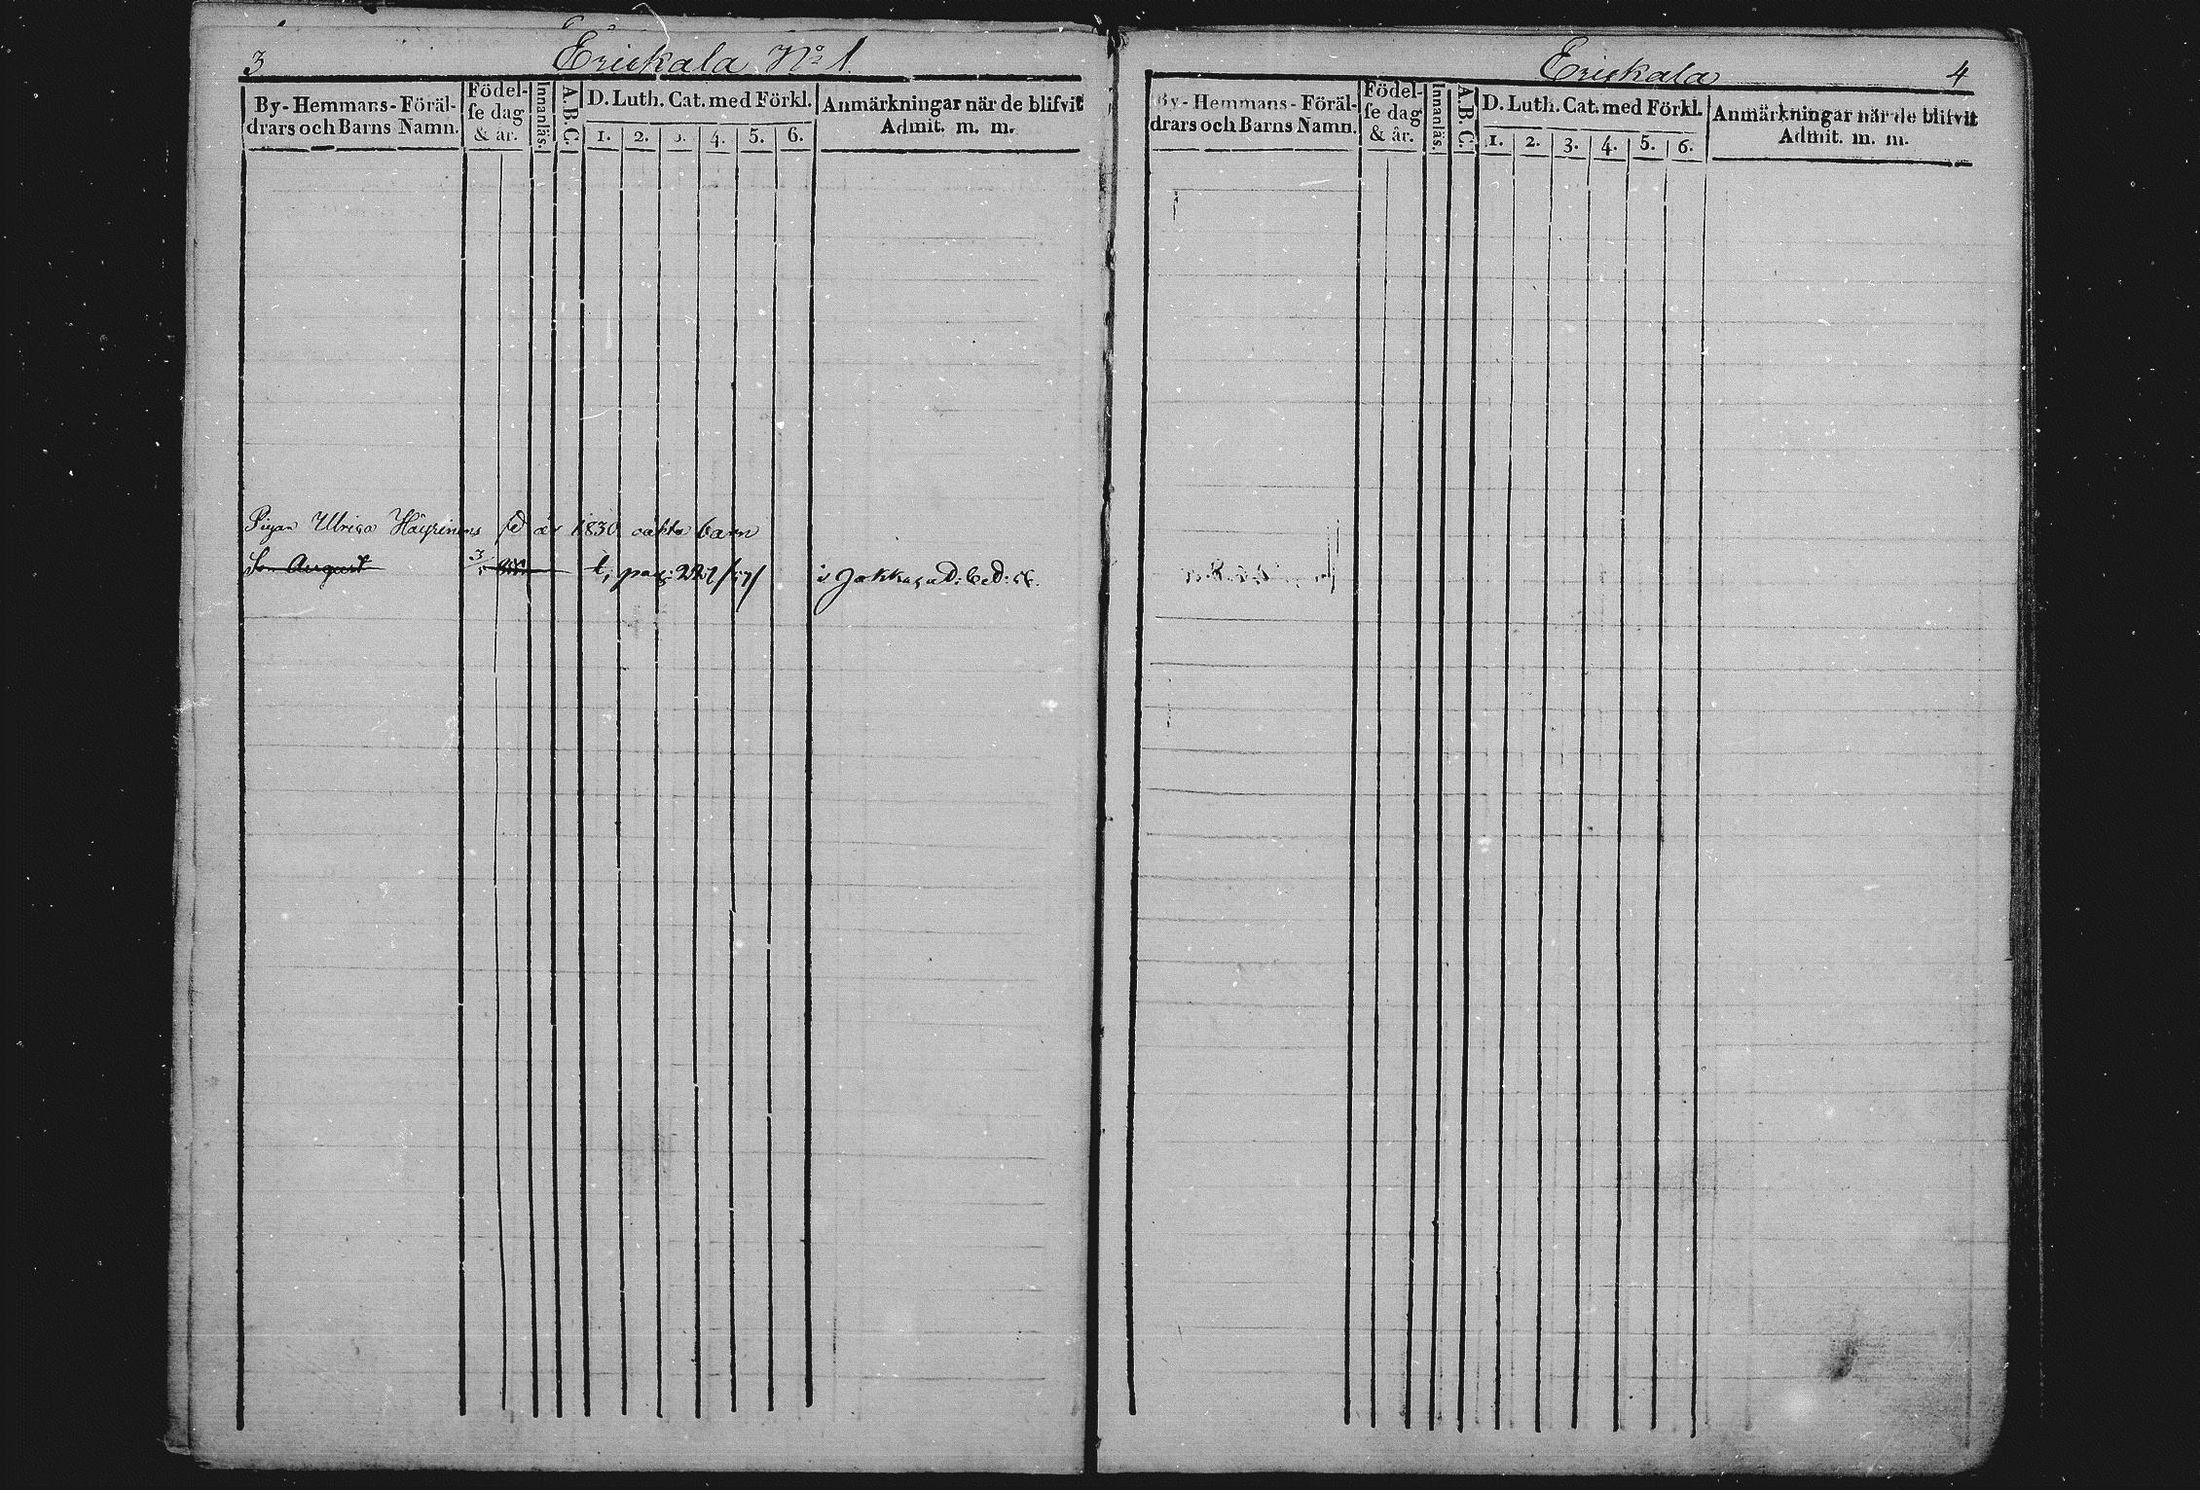 3 Erickala No 1.
By- Hemmans- Föräl-
drars och Barns Namn.
Födel-
se dag
& år.
Innanläs.
A.B.C.
D. Luth. Cat. med Förkl.
1. 2. 3. 4. 5. 6.
Anmärkningar när de blifvit
Admit. m. m.
Pigan Ulrica Häyrinens fd år 1830 oäkta barn
So August 3 t, pag: 227/57/ i Jakkas
Erickala 4
By- Hemmans- Föräl-
drars och Barns Namn.
Födel-
se dag
& år.
Innanläs.
A.B.C.
D. Luth. Cat. med Förkl.
1. 2. 3. 4. 5. 6.
Anmärkningar när de blifvit
Admit. m. m.